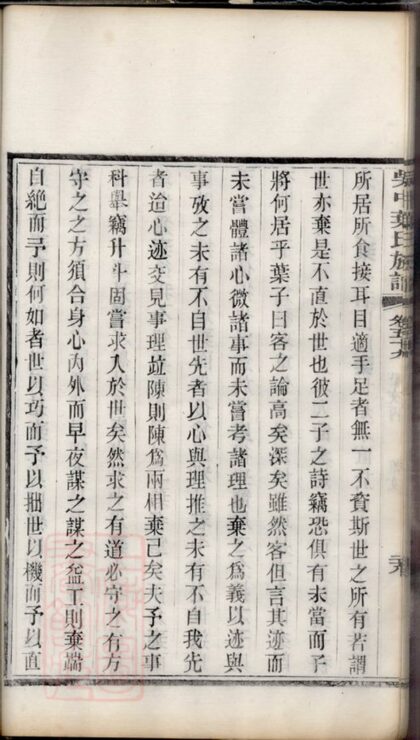 吳中葉氏族譜
所居所食接耳目適手足者無一不資斯世之所有若謂
世亦棄是不直於世也彼二子之詩竊恐俱有未當而子
將何居乎葉子曰客之論高矣深矣雖然客但言其迹而
未嘗體諸心微諸事而未嘗考諸理也棄之為義以迹與
事攷之未有不自世先者以心與理推之未有不自我先
者迨心迹交見事理竝陳則陳為兩相棄已矣夫予之事
科舉竊升斗固嘗求入於世矣然求之有道必守之有方
守之之方須合身心內外而早夜謀之謀之益工則棄端
自絕而予則何如者世以巧而予以拙世以機而予以直